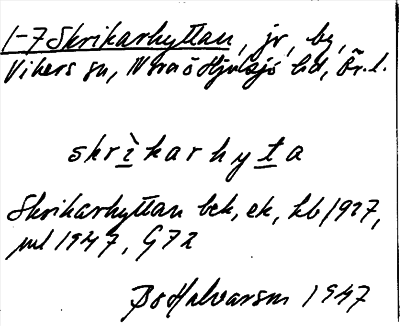 1-7 Skrikarhyttan, jr, by,
Vikers sn, Nora o Hjulsjö hd, Ör. l.
skrìkarhyta
Skrikarhyttan bek, ek, hb 1927,
jul 1947, G72
Bo Halvarson 1947